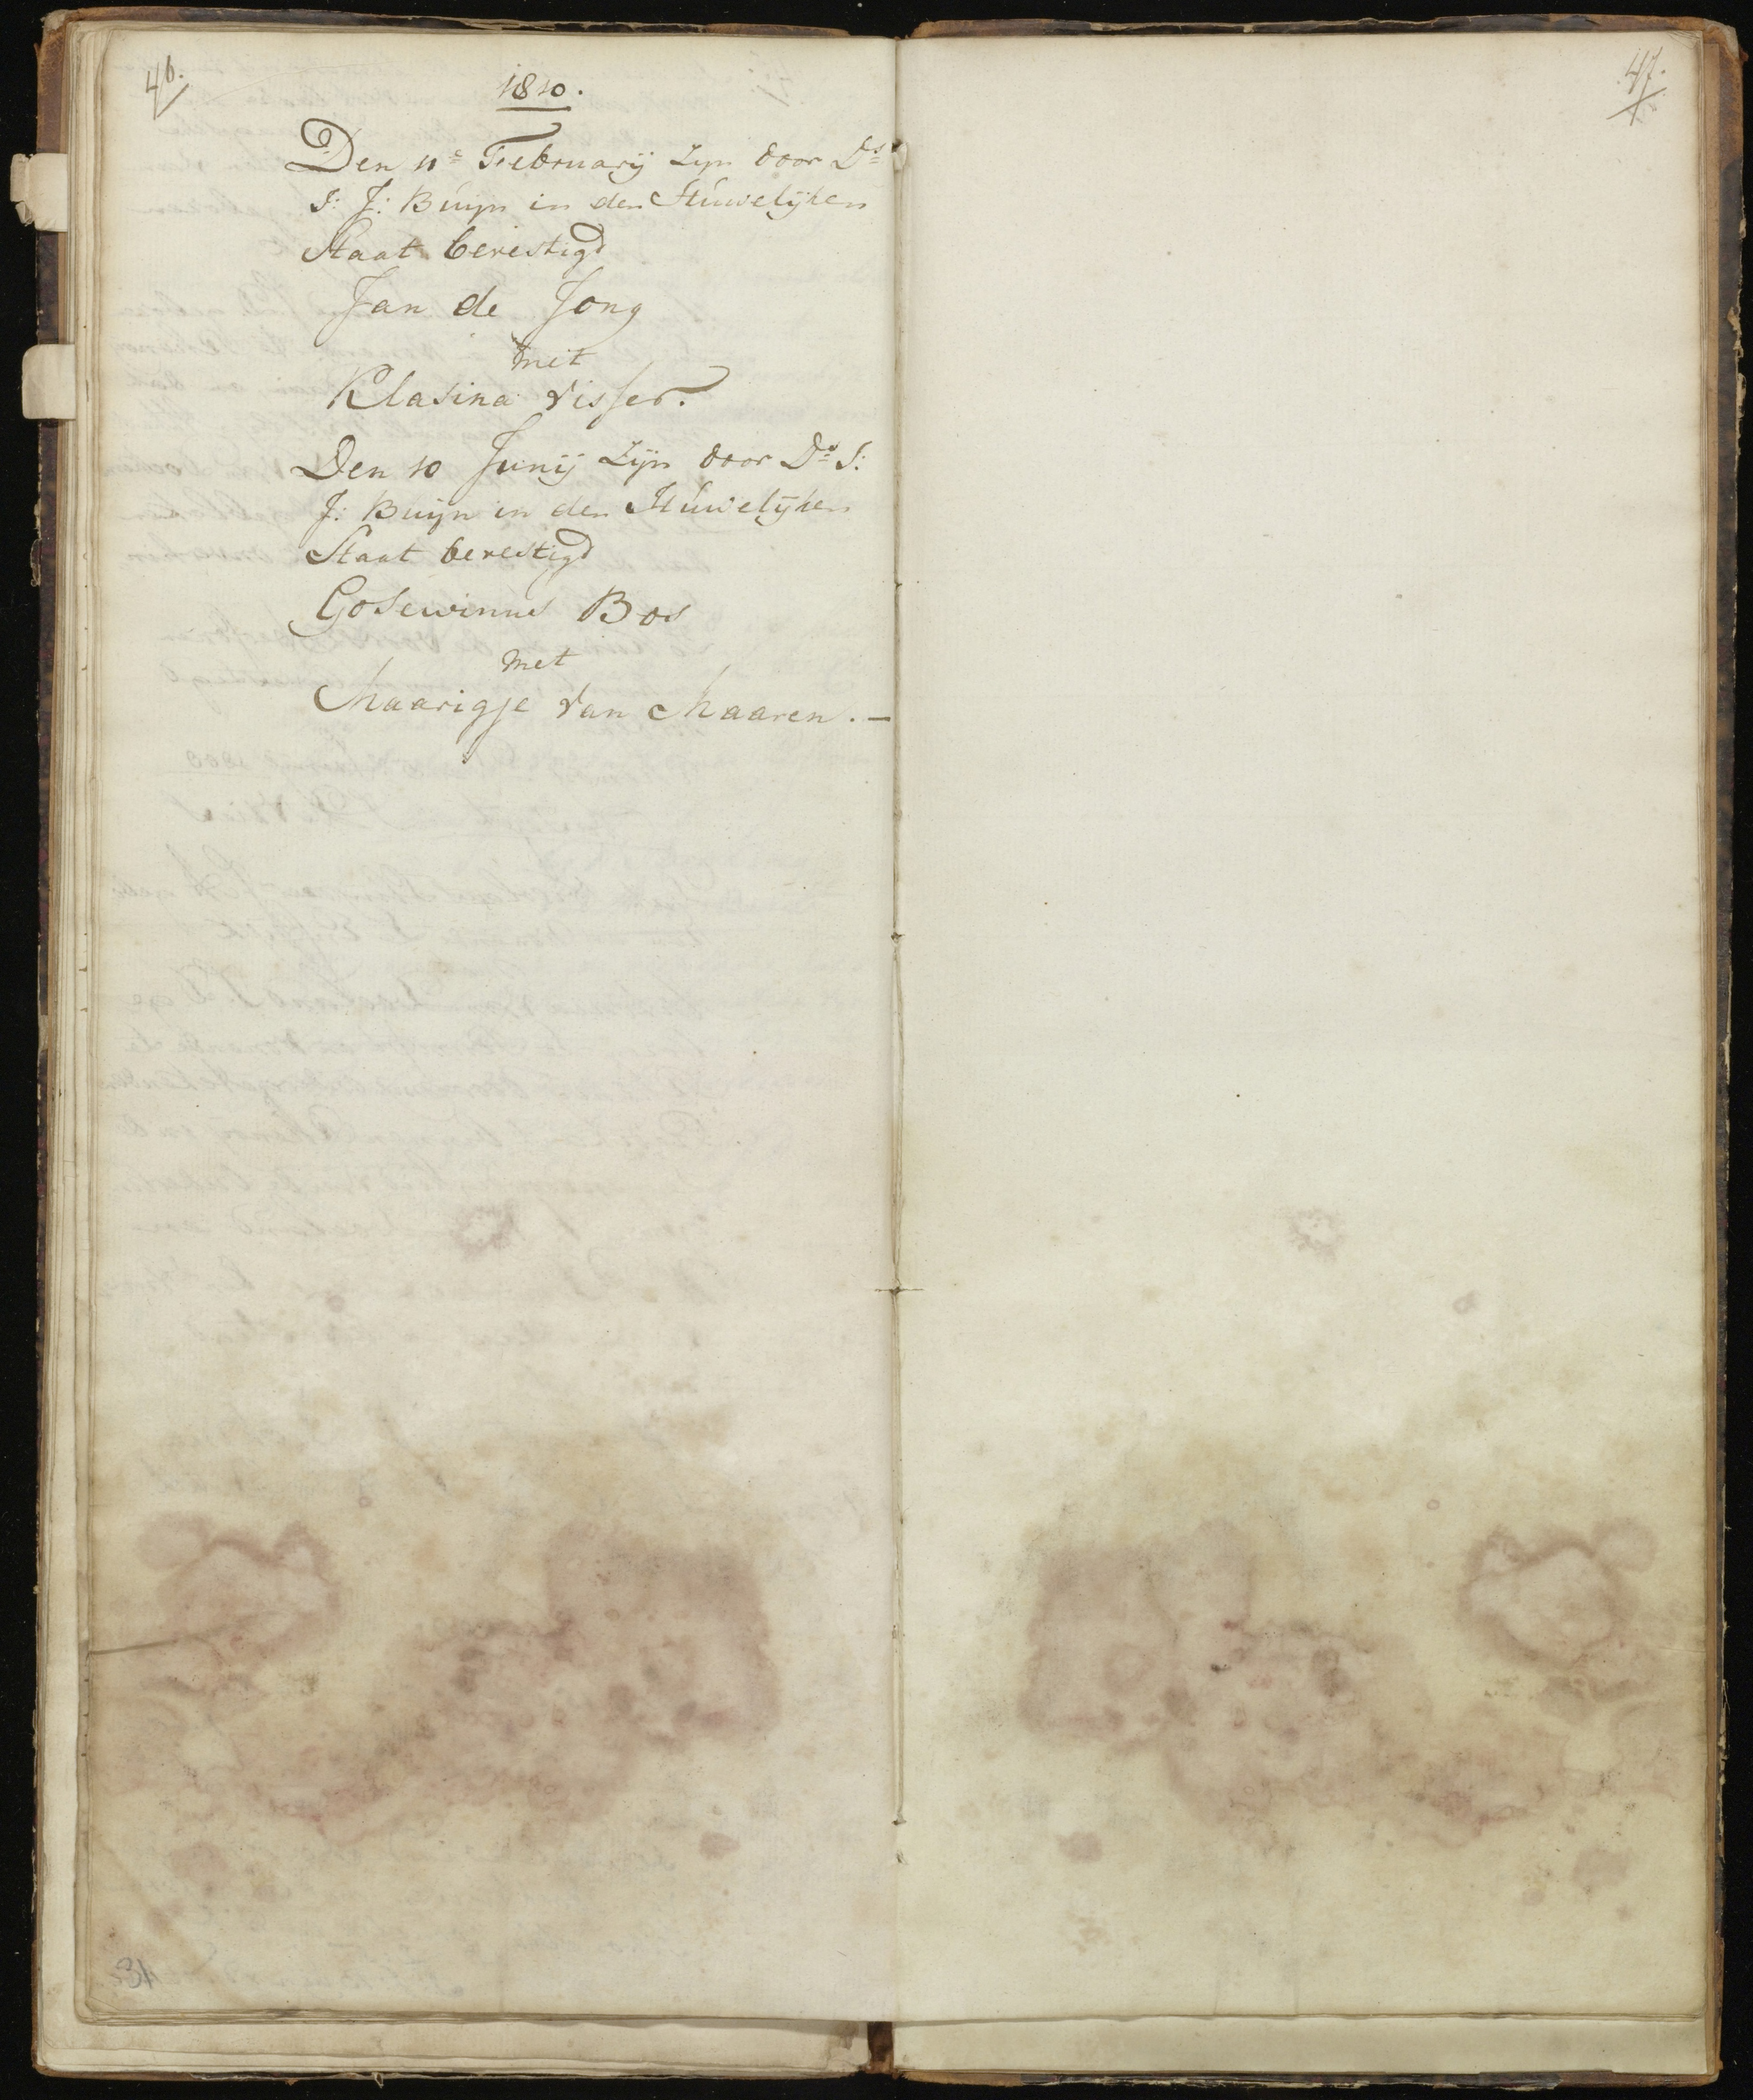 46.
1810.
Den 11e February zyn door Ds
S: J: Buijn in den Huwelijken
Staat bevestigd
Jan de Jong
met
Klasina Visser.
Den 10 Junij zijn door Ds S:
J: Buijn in den Huwelijken
Staat bevestigd
Gosewinus Bos
met
Maarigje van Maaren. -
47.